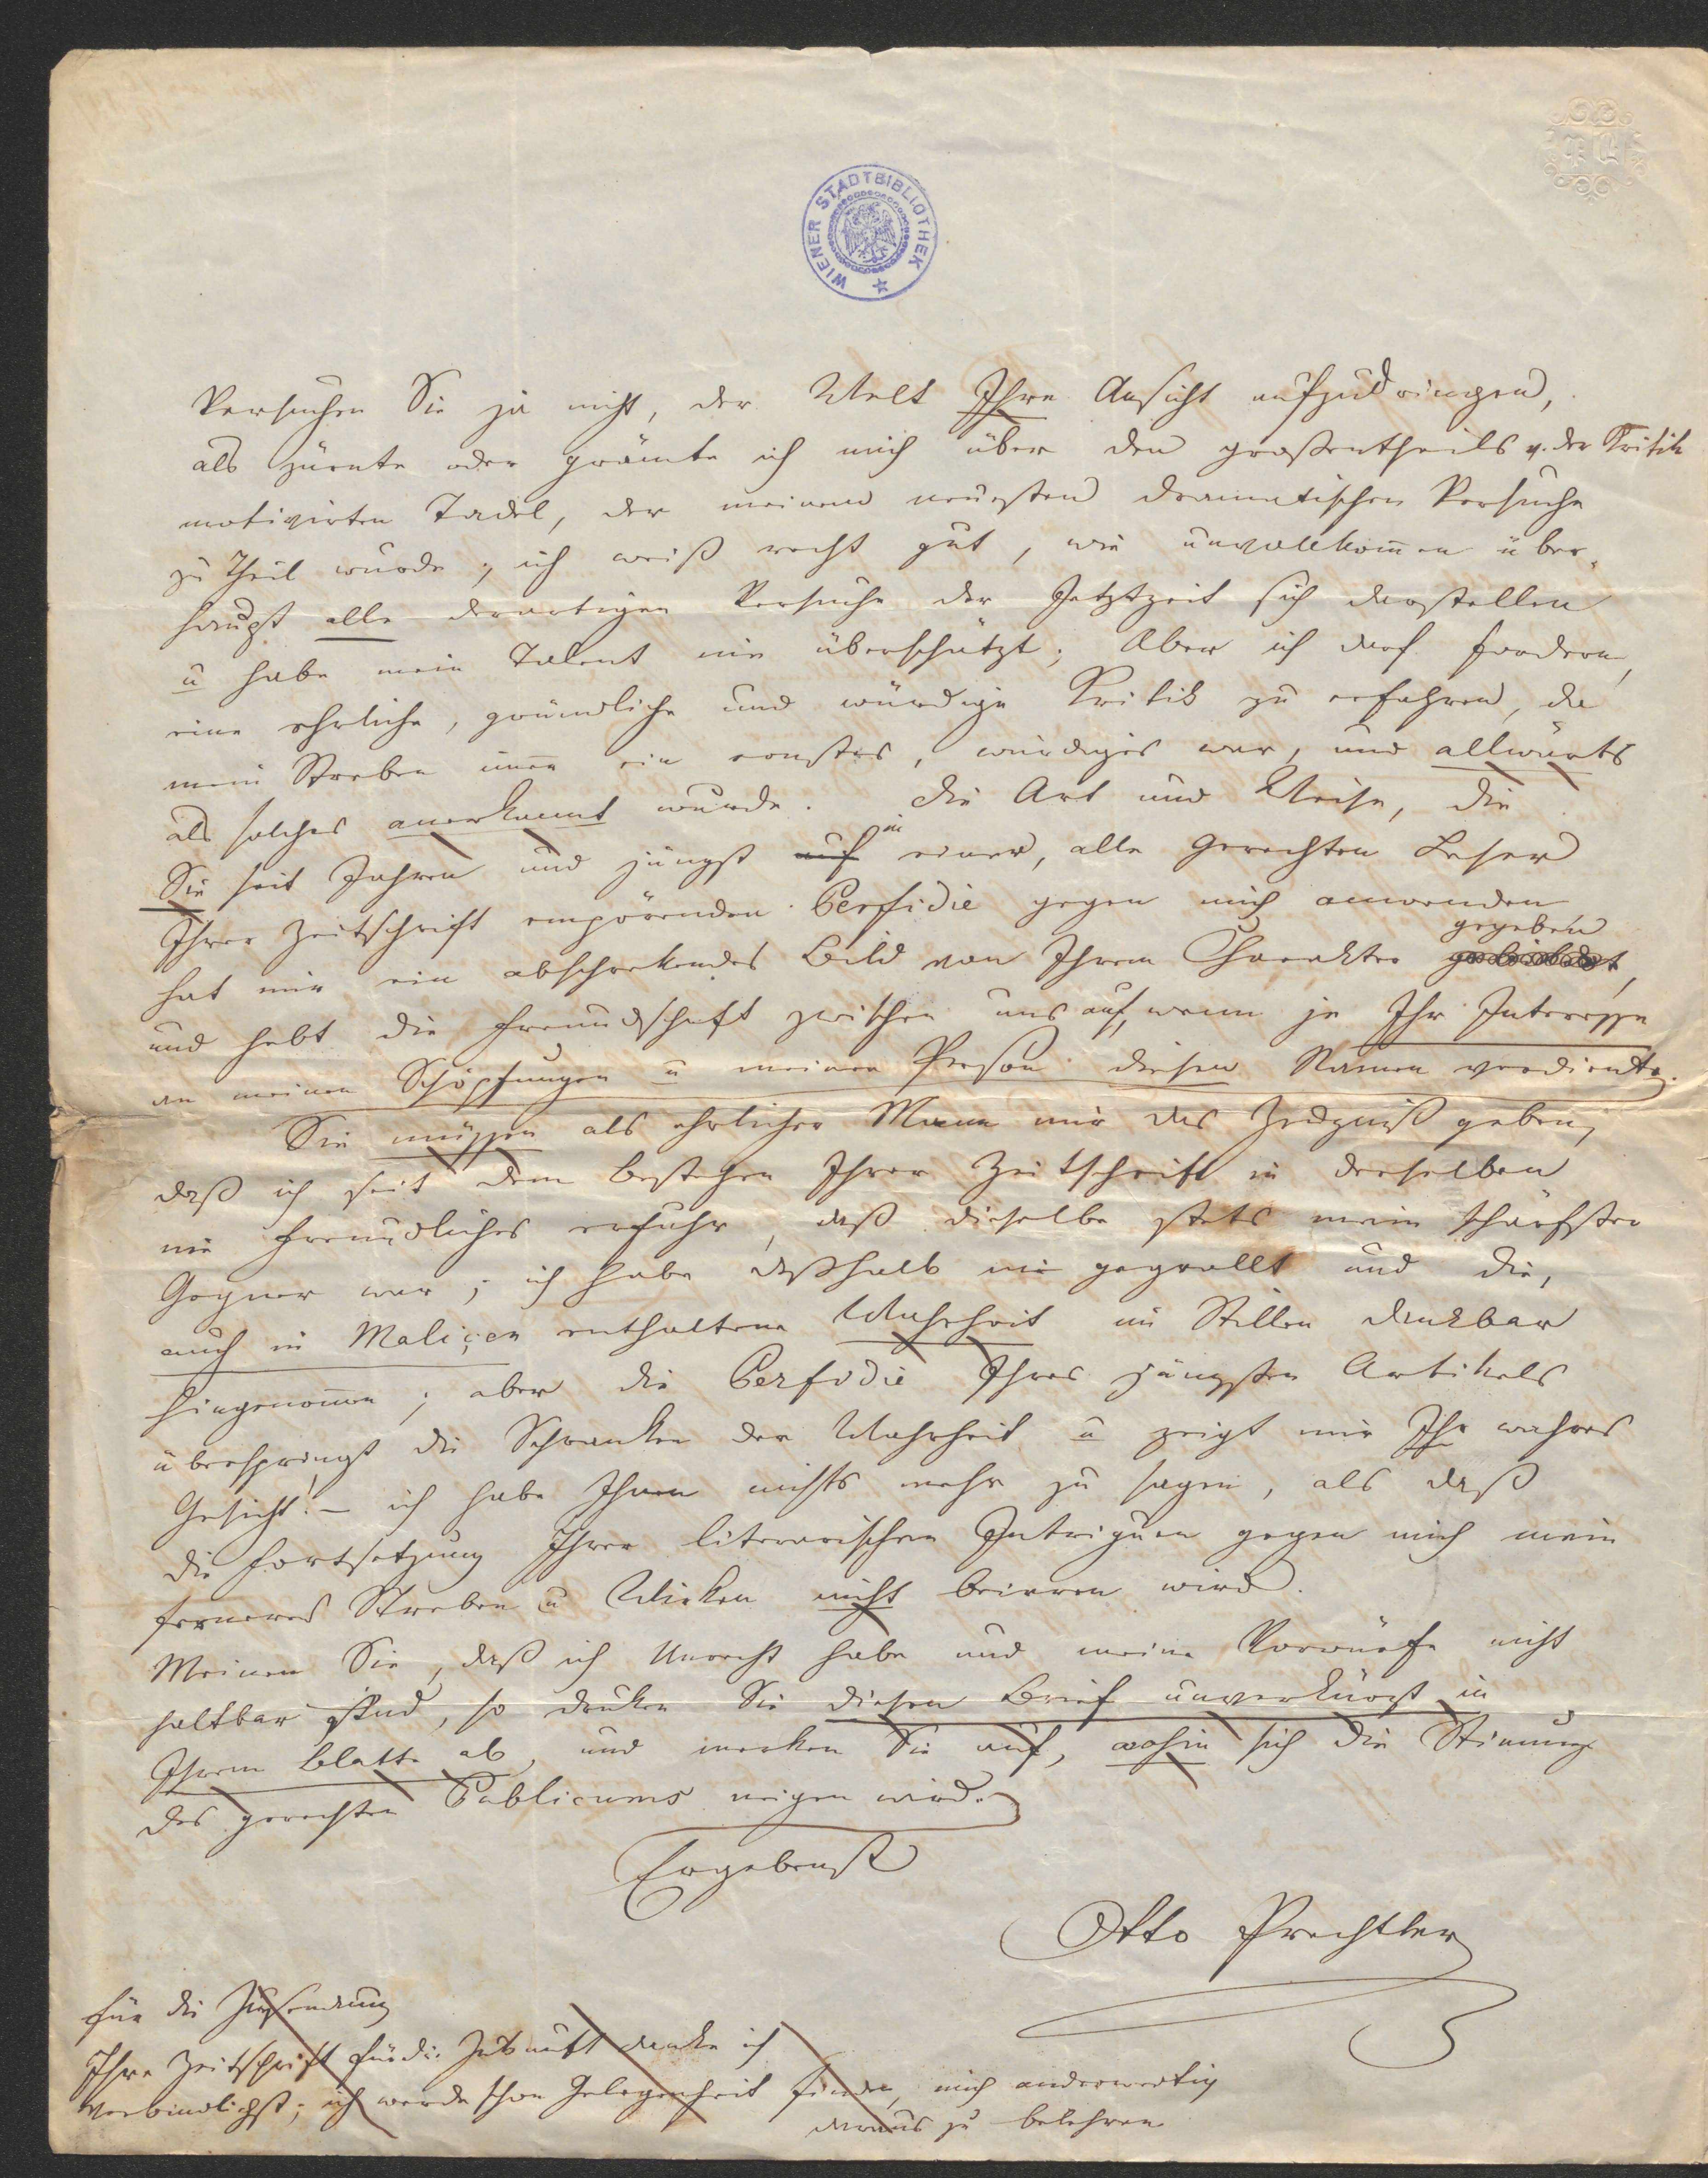 WIENER STADTBIBLIOTHEK
Versuchen Sie ja nicht, der Welt Ihre Ansicht aufzudringen,
als zürnte oder grämte ich mich über den großentheils v. der Kritik
motivirten Tadel, der meinem neuesten dramatischen Versuche
zu Theil wurde; ich weiß recht gut, wie unvollkom̅en über-
haupt alle derartigen Versuche der Jetztzeit sich darstellen
u habe mein Talent nie überschätzt; Aber ich darf fordern,
eine ehrliche, gründliche und würdige Kritik zu erfahren, da
mein Streben im̅er ein ernstes, würdiges war, und allwärts
als solches anerkannt wurde. Die Art und Weise, die
Sie seit Jahren und jüngst auf in einer, alle gerechten Leser
Ihrer Zeitschrift empörenden Perfidie gegen mich anwenden
hat mir ein abschrekendes Bild von Ihrem Charakter gegeben,
und hebt die Freundschaft zwischen uns auf, wenn je Ihr Interesse
an meinen Schöpfungen u meiner Person diesen Namen verdiente.
Sie müssen als ehrlicher Mann mir das Zeugniß geben,
daß ich seit dem Bestehen Ihrer Zeitschrift in derselben
nie Freundliches erfuhr, daß dieselbe stets mein schärfster
Gegner war; ich habe deßhalb nie gegrollt und die,
auch in Maliçen enthaltene Wahrheit im Stillen dankbar
hingenom̅en; aber die Perfidie Ihres jüngsten Artikels
überspringt die Schranken der Wahrheit u zeigt mir Ihr wahres
Gesicht! – ich habe Ihnen nichts mehr zu sagen, als daß
die Fortsetzung Ihrer literarischen Intriguen gegen mich mein
ferneres Streben u Wirken nicht beirren wird.
Meinen Sie, daß ich Unrecht habe und meine Vorwürfe nicht
haltbar sind, so druken Sie diesen Brief unverkürzt in
Ihrem Blatte ab, und merken Sie auf, wohin sich die Stim̅ung
des gerechten Publicums neigen wird.
Ergebenst
Otto Prechtler
Für die Zusendung
Ihrer Zeitschrift für die Zukunft danke ich
verbindlichst; ich werde schon Gelegenheit finden, mich anderwertig
daraus zu belehren